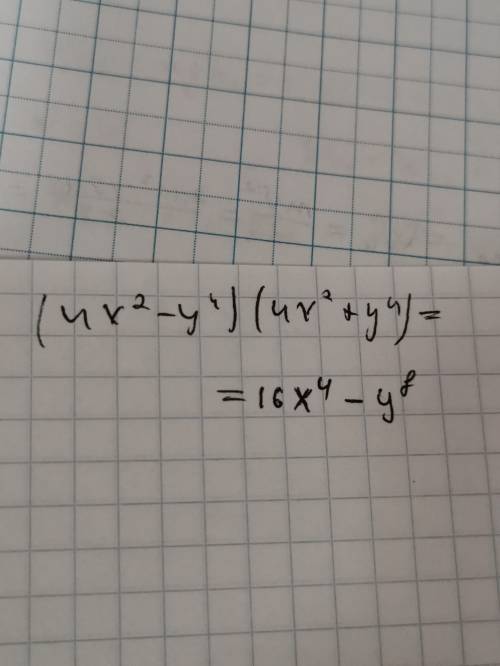 (4x² - y⁴)(4x² + y⁴) =
= 16x⁴ - y⁸